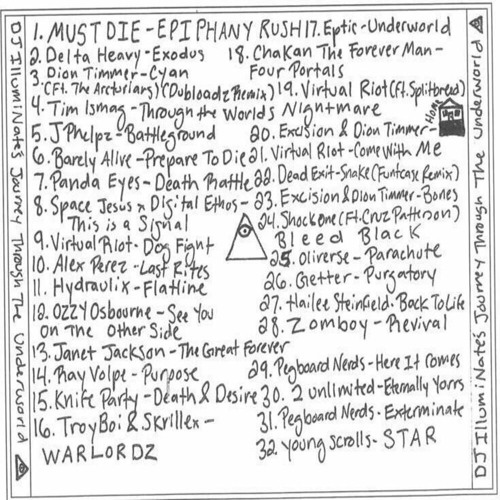 DJ IllumiNate's Journey Through The Underworld
1. MUST DIE - EPIPHANY RUSH
2. Delta Heavy - Exodus
3. Dion Timmer - Cyan
(Ft. The Arcturians) (Dubloadz Remix)
4. Tim Ismag - Through the Worlds
5. JPhelpz - Battleground
6. Barely Alive - Prepare To Die
7. Panda Eyes - Death Rattle
8. Space Jesus n Digital Ethos -
This is a Signal
9. Virtual Riot - Dog Fight
10. Alex Perez - Last Rites
11. Hydraulix - Flatline
12. Ozzy Osbourne - See You
On The Other Side
13. Janet Jackson - The Great Forever
14. Ray Volpe - Purpose
15. Knife Party - Death & Desire
16. Troy Boi & Skrillex -
WARLORDZ
17. Eptic - Underworld
18. Chakan The Forever Man -
Four Portals
19. Virtual Riot (Ft. Splitbread)
Nightmare
20. Excision & Dion Timmer -
Home
21. Virtual Riot - Come With Me
22. Dead Exit - Snake (Funtcase Remix)
23. Excision & Dion Timmer - Bones
24. Shock One (Ft. Cruz Patterson)
Bleed Black
25. Oliverse - Parachute
26. Getter - Purgatory
27. Hailee Steinfield - Back To Life
28. Zomboy - Revival
29. Pegboard Nerds - Here It Comes
30. 2 unlimited - Eternally Yours
31. Pegboard Nerds - Exterminate
32. Young Scrolls - STAR
DJ IllumiNate's Journey Through The Underworld